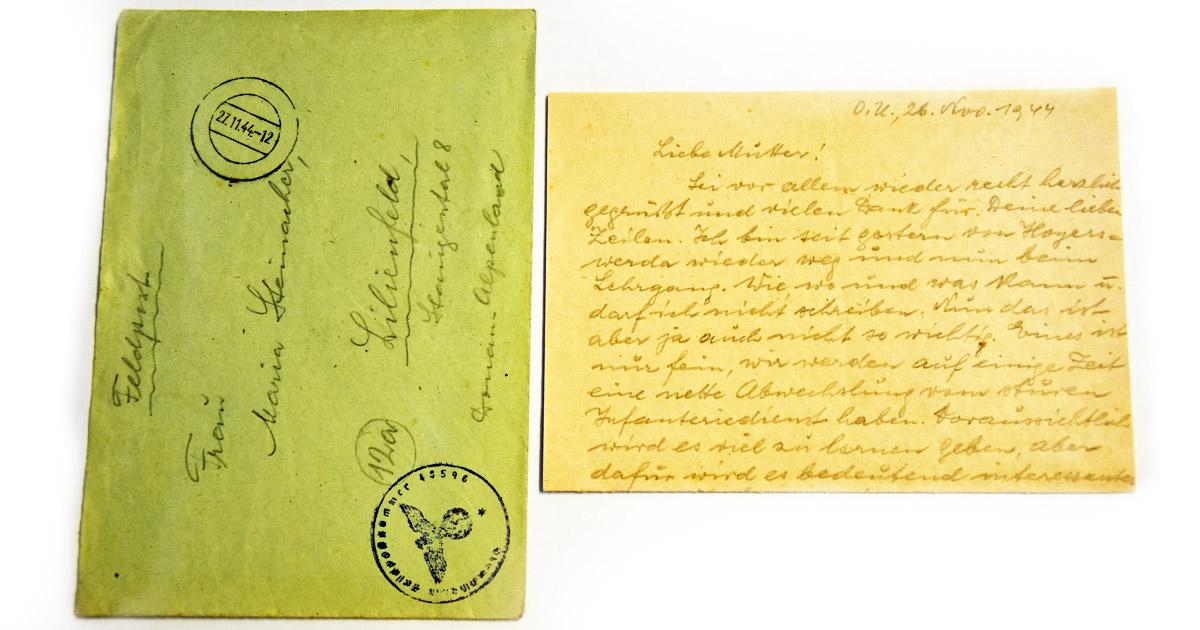 Feldpost
27.11.44.-12
Frau
Maria Steinacher,
Lilienfeld,
Stangental 8
Donau-Alpenland
12a
Feldpostnummer 43596
O.U., 26. Nov. 1944
Liebe Mutter!
Sei vor allem wieder recht herzlich
gegrüßt und vielen Dank für Deine lieben
Zeilen. Ich bin seit gestern von Hoyers-
werda wieder weg und nun beim
Lehrgang. Wie wo und was kann u.
darf ich nicht schreiben. Nun das ist
aber ja auch nicht so wichtig. Eines ist
nur fein, wir werden auf einige Zeit
eine nette Abwechslung vom sturen
Infanteriedienst haben. Voraussichtlich
wird es viel zu lernen geben, aber
dafür wird es bedeutend interessanter